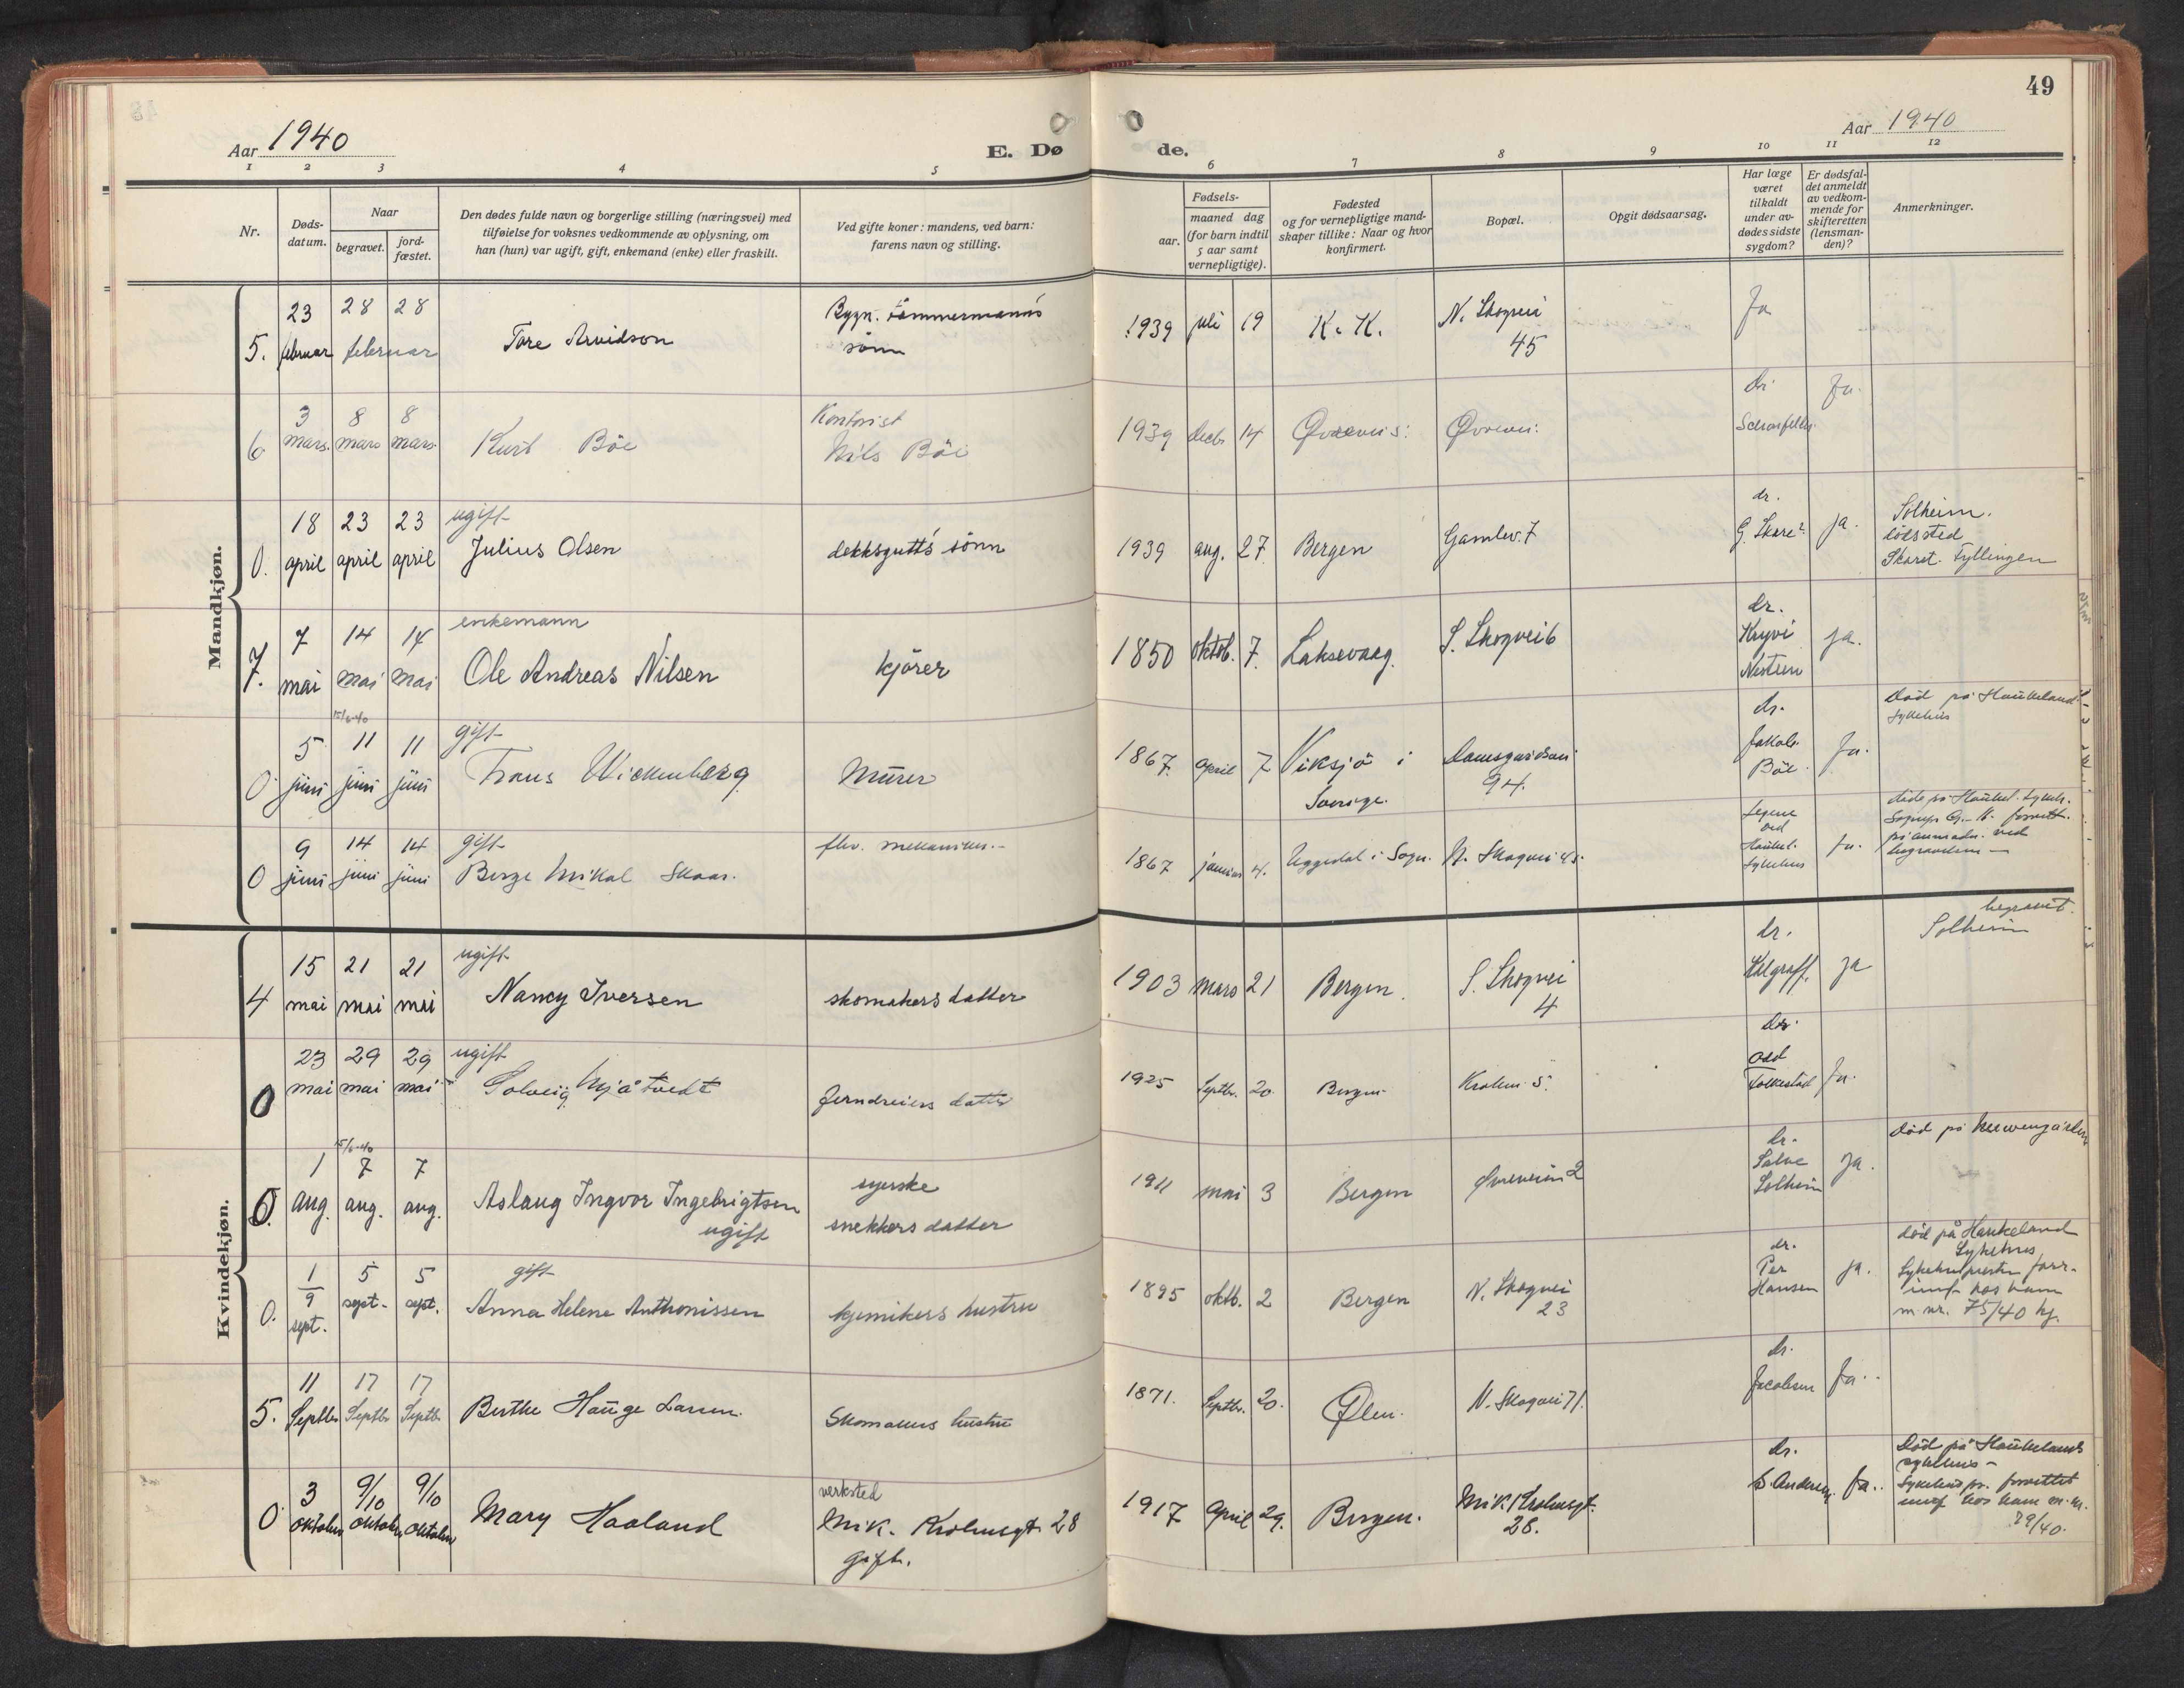 49
Aar 1940
E. Dø
de.
Aar 1940
1 2 3 4 5 6 7 8 9 10 11 12
Nr.
Døds-
datum.
Naar
begravet.
jord-
fæstet.
Den dødes fulde navn og borgerlige stilling (næringsvei) med
tilføielse for voksnes vedkommende av oplysning, om
han (hun) var ugift, gift, enkemand (enke) eller fraskilt.
Ved gifte koner: mandens, ved barn:
farens navn og stilling.
Fødsels-
aar.
maaned dag
(for barn indtil
5 aar samt
vernepligtige).
Fødested
og for vernepligtige mand-
skaper tillike: Naar og hvor
konfirmert.
Bopæl.
Opgit dødsaarsag.
Har læge
været
tilkaldt
under av-
dødes sidste
sygdom?
Er dødsfal-
det anmeldt
av vedkom-
mende for
skifteretten
(lensman-
den)?
Anmerkninger.
Mandkjøn.
5.
23 28 28
februar februar
Tore Arvidson
Bygn. tömmermanns
sönn
1939 juli 19
K. K.
N. Skogvei
45
Ja
6
3 8 8
mars. mars mars
Kurt Böe
Kontorist
Nils Böe
1939 decb. 14
dr.
Ja.
0.
18 23 23
april april april
ugift
Julius Olsen
dekksgutt's sönn
1939 aug. 27.
Bergen
Gamlev. 7
dr.
G. Skare?
ja.
Solheim.
dödssted
Skaret. Fyllingen
7.
7 14 14
mai mai mai
enkemann
Ole Andreas Nilsen
kjörer
1850 oktob. 7.
Laksevaag.
S. Skogvei 6
dr.
Kryvi
Nestun
ja.
0
15/6-40
5 11 11
juni juni juni
gift
Frans Wickenberg
Murer
1867. april 7
Viksjö i
Sverige.
94.
dr.
Jakob
Böe.
Ja.
Död på Haukeland
sykehus
0
9 14 14
juni juni juni
gift
Berge Mikal Skaar.
fhv. mekaniker.
1867 januar 4.
i Sogn.
N. Skogvei 45.
Legene
ved
Haukel.
Sykehus
Ja.
Kvindekjøn.
4
15 21 21
mai mai mai
ugift
Nancy Iversen
skomakers datter
1903 mars 21
Bergen.
S. Skogvei
4
dr.
ja
begravet.
Solheim
0
23 29 29
mai mai mai
ugift
Solveig Mjåtvedt
Jerndreiers datter
1925 Septbr. 20.
Bergen
Krohnv. 5.
dr.
Odd
Tolkestad
Ja.
0.
15/6-40
1 7 7
aug. aug. aug.
Aslaug Ingvor Ingebrigtsen
ugift
syerske
snekkers datter
1911 mai 3
Bergen
dr.
Salve
Solheim
Ja.
0.
1/9 5 5
sept. sept. sept.
gift
Anna Helene Anthonissen
kjemikers hustru
1895 oktb. 2
Bergen
N. Skogvei
23
dr.
Per
Hansen
ja.
död på Haukeland
Sykehus
Sykehuspresten forr-
innf. hos ham
m. nr. 75/40 kj.
5.
11 17 17
Septbr. Septbr. Septbr.
Berthe Hauge Larsen.
Skomakers hustru
1871. Septbr. 20.
Ølen.
N. Skogvei 71.
dr.
Jacobsen
Ja.
0
3 9/10 9/10
oktober oktober oktober
Mary Haaland
verksted
Mik. Krohnsgt. 28
gift.
1917 april 29.
Bergen.
Mik. Krohnsgt.
28.
dr.
Andersen
Ja.
Död på Haukelands
sykehus -
Sykehuspr. forrettet
innf. hos ham m. nr.
79/40.